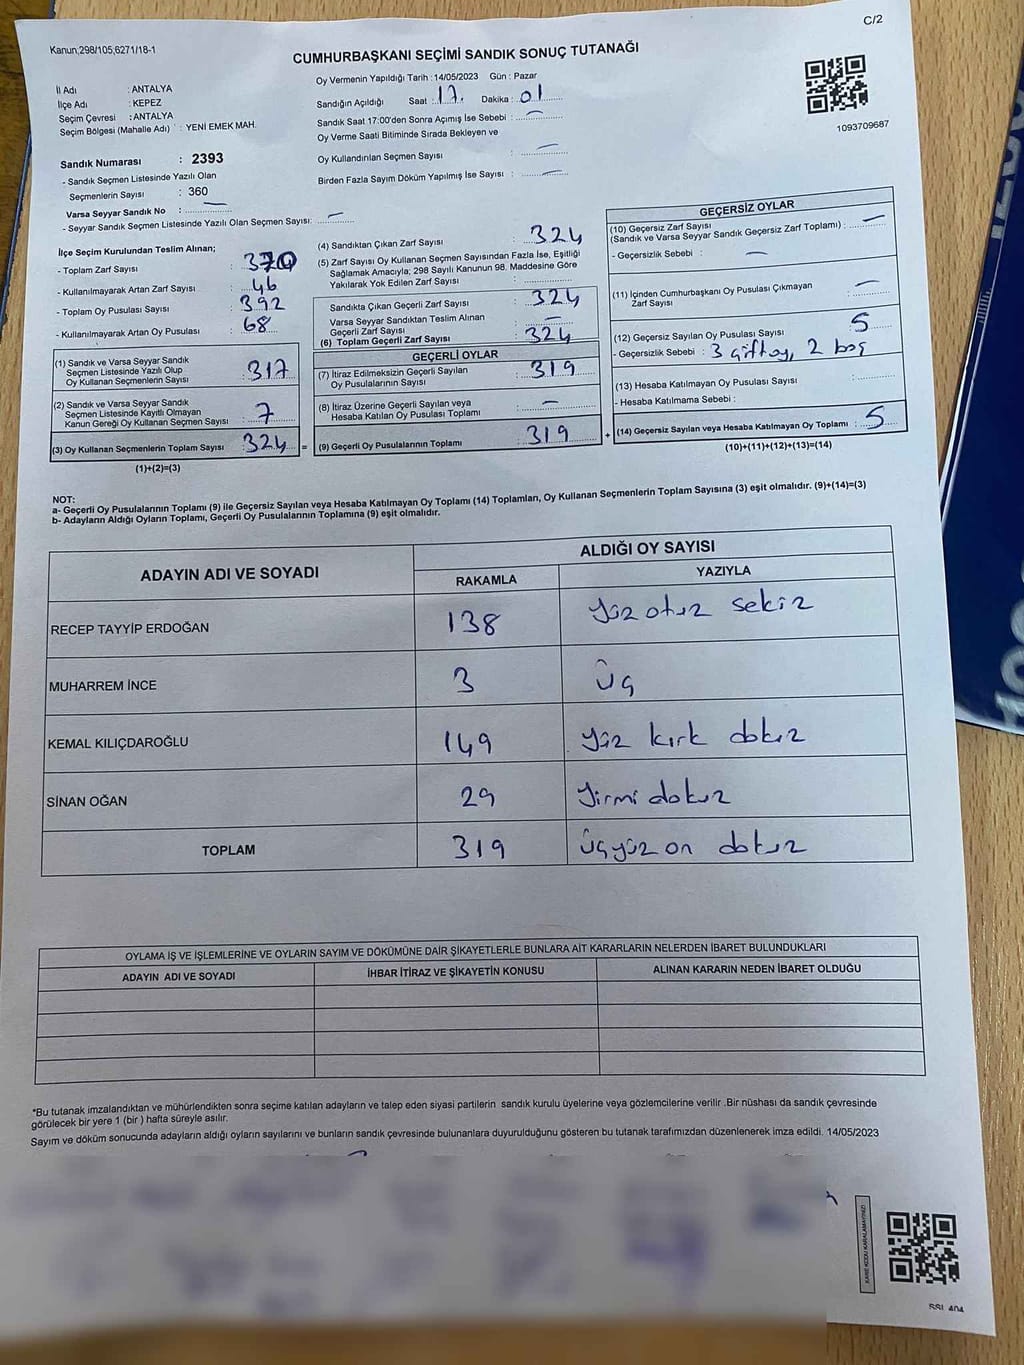 C/2
Kanun,298/105,6271/18-1
CUMHURBAŞKANI SEÇİMİ SANDIK SONUÇ TUTANAĞI
İl Adı : ANTALYA
İlçe Adı : KEPEZ
Seçim Çevresi : ANTALYA
Seçim Bölgesi (Mahalle Adı) : YENİ EMEK MAH.
Oy Vermenin Yapıldığı Tarih : 14/05/2023 Gün : Pazar
Sandığın Açıldığı Saat : 17. Dakika : 01
Sandık Saat 17:00'den Sonra Açımış İse Sebebi : —
Oy Verme Saati Bitiminde Sırada Bekleyen ve
Oy Kullandırılan Seçmen Sayısı : —
Birden Fazla Sayım Döküm Yapılmış İse Sayısı : —
1093709687
Sandık Numarası : 2393
- Sandık Seçmen Listesinde Yazılı Olan
Seçmenlerin Sayısı : 360
Varsa Seyyar Sandık No : —
- Seyyar Sandık Seçmen Listesinde Yazılı Olan Seçmen Sayısı: —
İlçe Seçim Kurulundan Teslim Alınan;
- Toplam Zarf Sayısı : 370
- Kullanılmayarak Artan Zarf Sayısı : 46
- Toplam Oy Pusulası Sayısı : 392
- Kullanılmayarak Artan Oy Pusulası : 68
(1) Sandık ve Varsa Seyyar Sandık
Seçmen Listesinde Yazılı Olup
Oy Kullanan Seçmenlerin Sayısı : 317
(2) Sandık ve Varsa Seyyar Sandık
Seçmen Listesinde Kayıtlı Olmayan
Kanun Gereği Oy Kullanan Seçmen Sayısı : 7
(3) Oy Kullanan Seçmenlerin Toplam Sayısı : 324 =
(1)+(2)=(3)
(4) Sandıktan Çıkan Zarf Sayısı : 324
(5) Zarf Sayısı Oy Kullanan Seçmen Sayısından Fazla İse, Eşitliği
Sağlamak Amacıyla; 298 Sayılı Kanunun 98. Maddesine Göre
Yakılarak Yok Edilen Zarf Sayısı :
Sandıkta Çıkan Geçerli Zarf Sayısı : 324
Varsa Seyyar Sandıktan Teslim Alınan
Geçerli Zarf Sayısı : —
(6) Toplam Geçerli Zarf Sayısı : 324
GEÇERLİ OYLAR
(7) İtiraz Edilmeksizin Geçerli Sayılan
Oy Pusulalarının Sayısı : 319
(8) İtiraz Üzerine Geçerli Sayılan veya
Hesaba Katılan Oy Pusulası Toplamı : —
(9) Geçerli Oy Pusulalarının Toplamı : 319 +
GEÇERSİZ OYLAR
(10) Geçersiz Zarf Sayısı
(Sandık ve Varsa Seyyar Sandık Geçersiz Zarf Toplamı) : —
- Geçersizlik Sebebi : —
(11) İçinden Cumhurbaşkanı Oy Pusulası Çıkmayan
Zarf Sayısı : —
(12) Geçersiz Sayılan Oy Pusulası Sayısı : 5
- Geçersizlik Sebebi : 3 çift oy, 2 boş
(13) Hesaba Katılmayan Oy Pusulası Sayısı :
- Hesaba Katılmama Sebebi :
(14) Geçersiz Sayılan veya Hesaba Katılmayan Oy Toplamı : 5
(10)+(11)+(12)+(13)=(14)
NOT:
a- Geçerli Oy Pusulalarının Toplamı (9) ile Geçersiz Sayılan veya Hesaba Katılmayan Oy Toplamı (14) Toplamları, Oy Kullanan Seçmenlerin Toplam Sayısına (3) eşit olmalıdır. (9)+(14)=(3)
b- Adayların Aldığı Oyların Toplamı, Geçerli Oy Pusulalarının Toplamına (9) eşit olmalıdır.
ADAYIN ADI VE SOYADI ALDIĞI OY SAYISI
RAKAMLA YAZIYLA
RECEP TAYYİP ERDOĞAN 138 Yüz otuz sekiz
MUHARREM İNCE 3 Üç
KEMAL KILIÇDAROĞLU 149 Yüz kırk dokuz
SİNAN OĞAN 29 Yirmi dokuz
TOPLAM 319 Üçyüz on dokuz
OYLAMA İŞ VE İŞLEMLERİNE VE OYLARIN SAYIM VE DÖKÜMÜNE DAİR ŞİKAYETLERLE BUNLARA AİT KARARLARIN NELERDEN İBARET BULUNDUKLARI
ADAYIN ADI VE SOYADI İHBAR İTİRAZ VE ŞİKAYETİN KONUSU ALINAN KARARIN NEDEN İBARET OLDUĞU
*Bu tutanak imzalandıktan ve mühürlendikten sonra seçime katılan adayların ve talep eden siyasi partilerin sandık kurulu üyelerine veya gözlemcilerine verilir .Bir nüshası da sandık çevresinde
görülecek bir yere 1 (bir ) hafta süreyle asılır.
Sayım ve döküm sonucunda adayların aldığı oyların sayılarını ve bunların sandık çevresinde bulunanlara duyurulduğunu gösteren bu tutanak tarafımızdan düzenlenerek imza edildi. 14/05/2023
KARE KODU KARALAMAYINIZ!